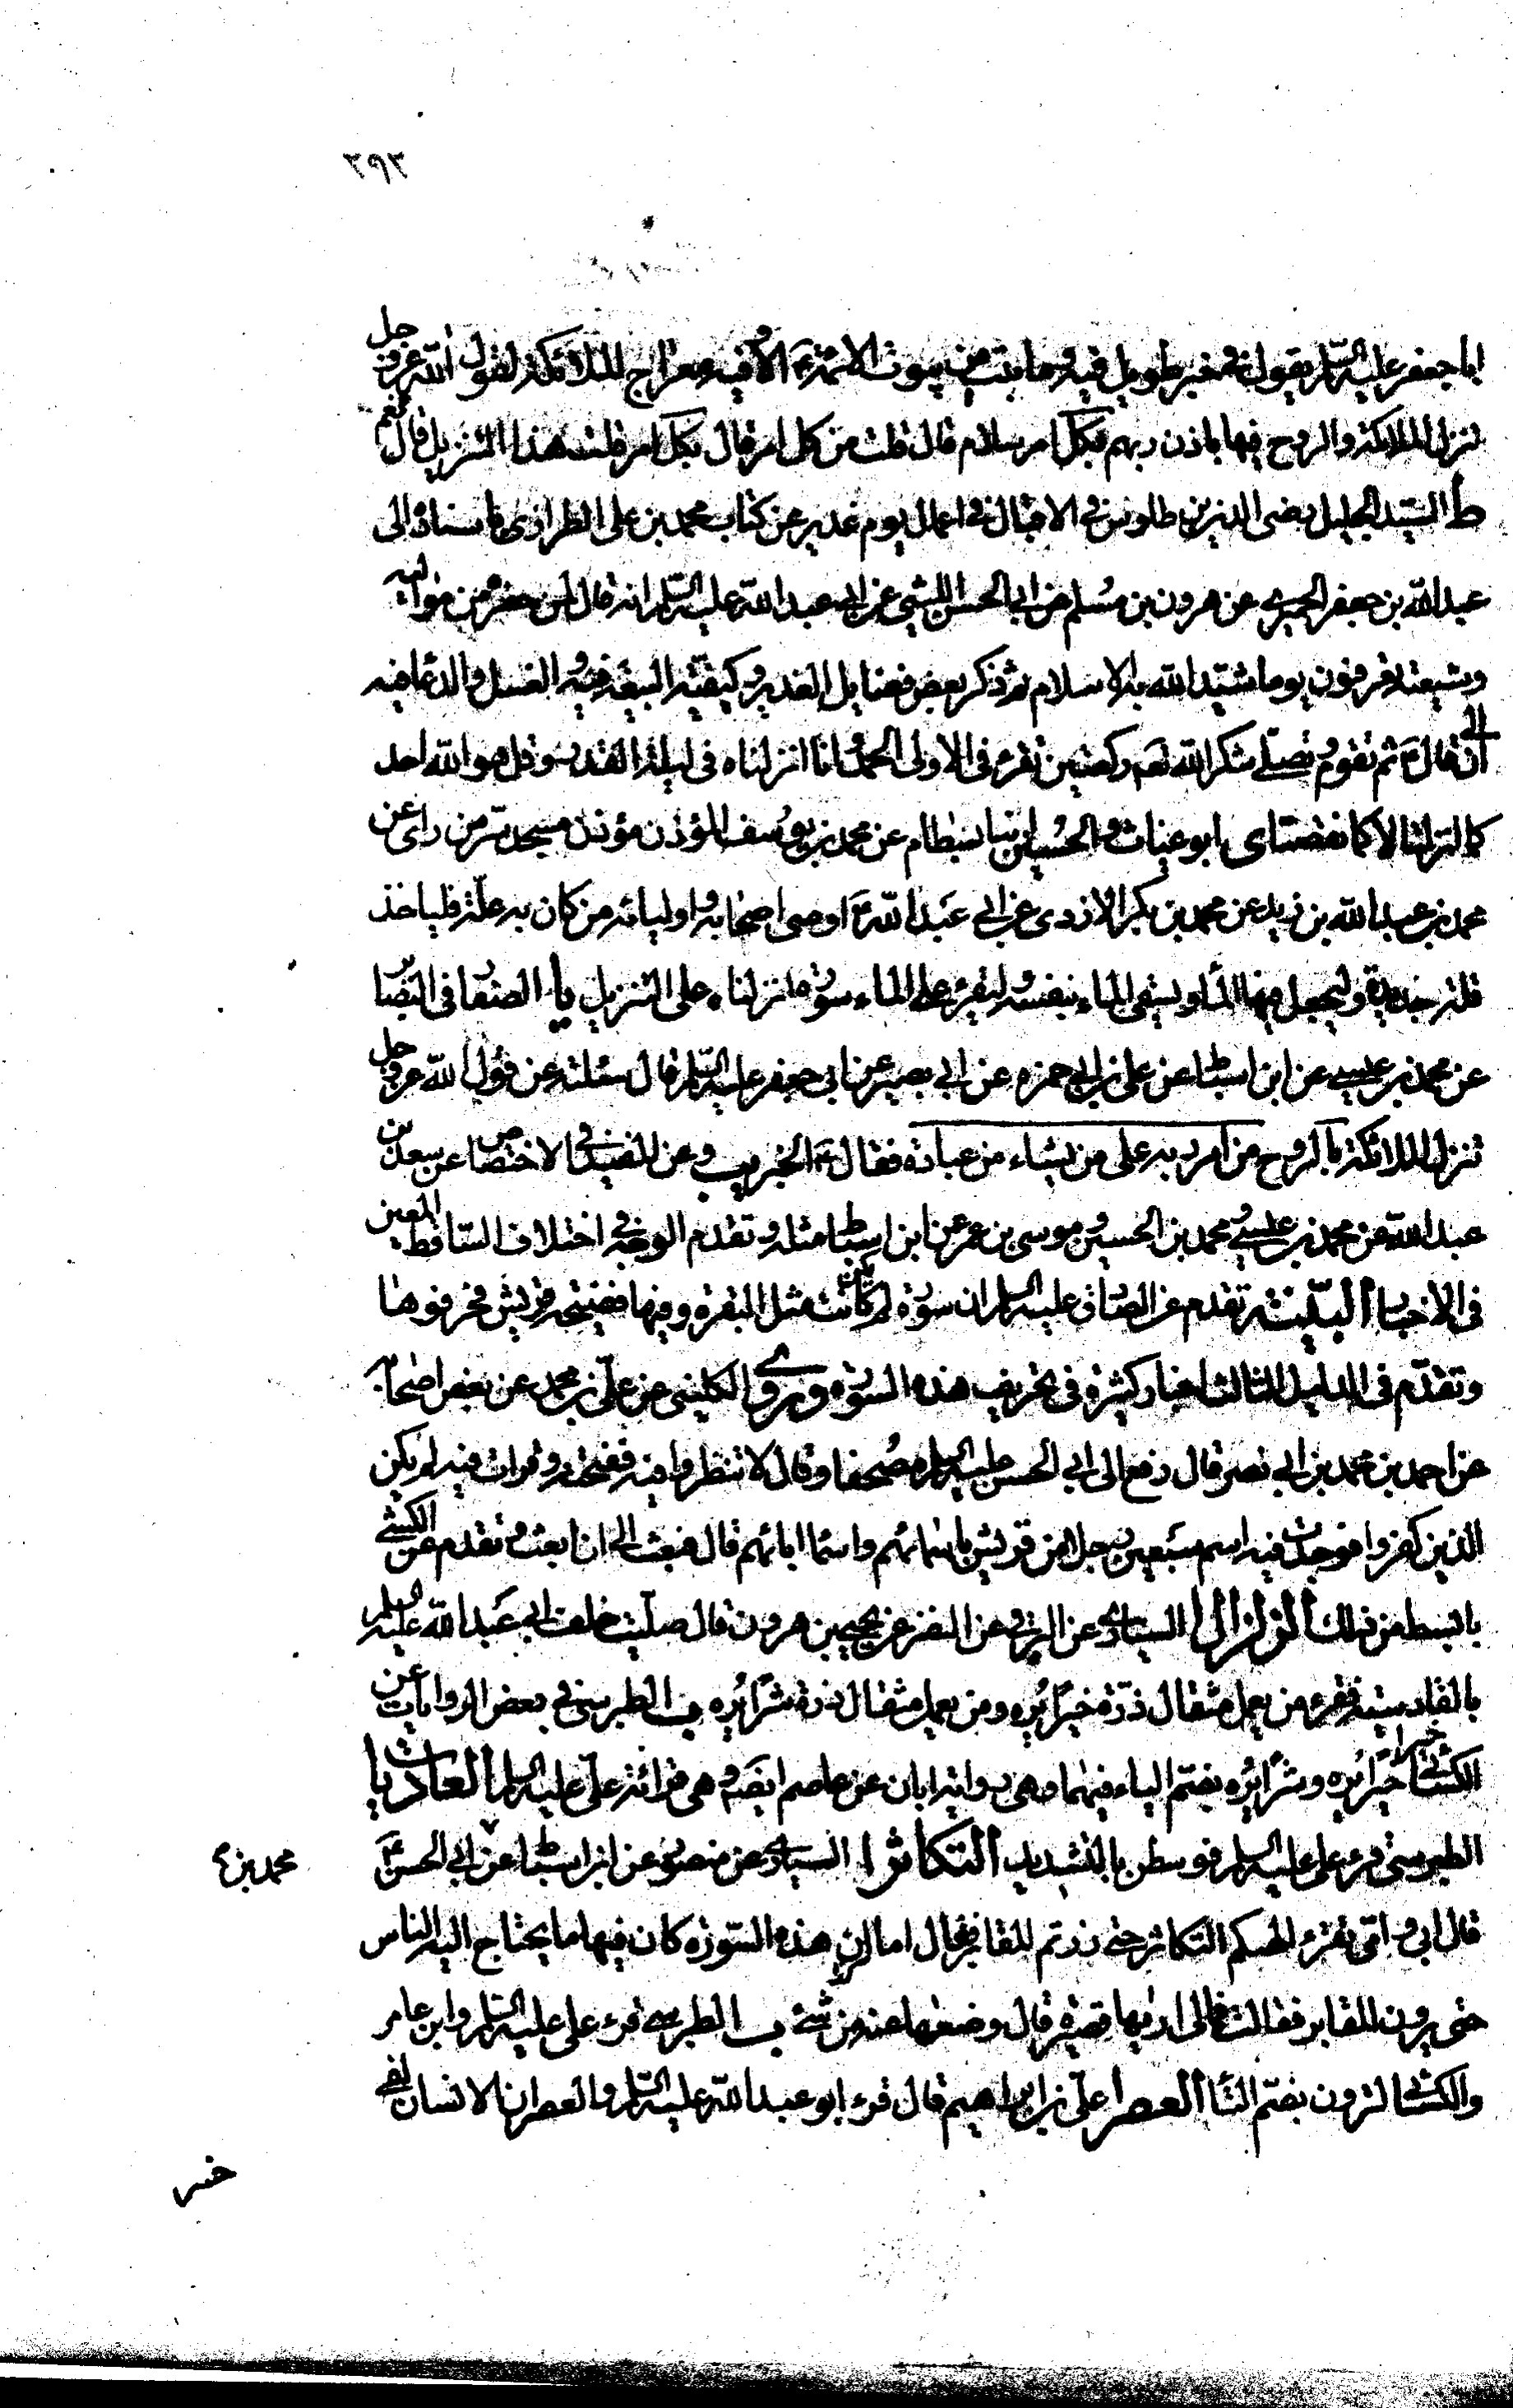 ٢٩٢
ابا جعفر عليه السلم يقول في خبر طويل فيه وما بيت من بيوت الائمة ع الا وفيه معراج للملائكة لقول الله عز وجل
تنزل الملائكة والروح فيها باذن ربهم بكل امر سلام قال قلت من كل امر قال بكل امر قلت هذا التنزيل قال نعم
ط السيد الجليل رضى الدين بن طاوس في الاقبال في اعمال يوم غدير عن كتاب محمد بن على الطرازى باسناده الى
عبد الله بن جعفر الحميرى عن هرون بن مسلم عن ابى الحسن الليثى عن ابى عبد الله عليه السلم انه قال لمن حضره من مواليه
وشيعته اتعرفون يوما شيد الله به الاسلام ثم ذكر بعض فضايل الغدير وكيفيته البيعة فيه والغسل والدعا فيه
الى ان قال ع ثم تقوم وتصلى شكرا لله تعم ركعتين تقرء في الاولى الحمد وانا انزلناه فى ليلة القدر وقل هو الله احد
كما انزلتا لا كما نقصتا ى ابو عتاب والحسين ابنا بسطام عن محمد بن يوسف المؤذن مؤذن مسجد سر من راى عن
محمد بن عبد الله بن زيد عن محمد بن بكر الازدى عن ابى عبد الله ع اوصى اصحابه واوليائه من كان به علة فلياخذ
قلة جديدة وليجعل فيها الماء وليستقى الماء بنفسه وليقرء على الماء سورة انزلناه على التنزيل يا الصفار فى البصائر
عن محمد بن عيسى عن ابن اسباط عن على بن ابى حمزه عن ابى بصير عن ابى جعفر عليه السلم قال سئلته عن قول الله عز وجل
تنزل الملائكة بالروح من امر ربه على من يشاء من عباده فقال ع الخبر يب وعن المفيد في الاختصاص عن سعد بن
عبد الله عن محمد بن عيسى ومحمد بن الحسين وموسى بن عمر عن ابن اسباط مثله وتقدم الوجه في اختلاف الساقط المعين
فى الاخبار البينة ا تقدم عن الصادق عليه السلم ان سورة لم يكن كانت مثل البقرة وفيها فضيحة قريش فحرفوها
وتقدم فى الدليل الثالث اخبار كثيرة فى تحريف هذه السورة وروى الكلينى عن على بن محمد عن بعض اصحابه
عن احمد بن محمد بن ابى نصر قال دفع الى ابى الحسن عليه السلم مصحفا وقال لا تنظر وا فيه ففتحته وقرات فيه لم يكن
الذين كفروا فوجدت فيه اسم سبعين رجلا من قريش باسمائهم واسماء ابائهم قال فبعث الى ان ابعث وتقدم عن الكشى
بابسط من ذلك الزلزال ا السيارى عن البرقى عن النضر عن يحيى بن هرون قال صليت خلف ابى عبد الله عليه السلم
بالقادسية فقرء من يعمل مثقال ذرة خيرا يره ومن يعمل مثقال ذرة شرا يره ب الطبرسى في بعض الروايات عن
الكسائى خيرا يره وشرا يره بضم الياء فيهما وهى رواية ابان عن عاصم ايضا وهى قرائة على عليه السلم العاديات ا
الطبرسى قرء على عليه السلم فوسطن بالتشديد التكاثر ا السيارى عن منصور عن ابن اسباط عن ابى الحسن ع
محمد بن ع
قال ابى وامى تقرء الهيكم التكاثر حتى زرتم المقابر فقال اما ان هذه السورة كان فيها ما يحتاج اليه الناس
حتى يرون المقابر فقالت قال وضعها عنه من شئ ب الطبرسى قرء على عليه السلم وابن عامر
والكسائى لترون بضم التاء العصر ا على بن ابراهيم قال قرء ابو عبد الله عليه السلم والعصر ان الانسان لفى
خسر